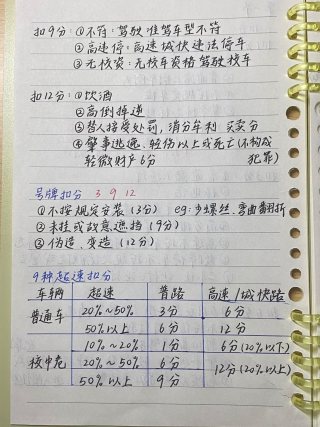 扣9分：①不符：驾驶准驾车型不符
②高速停：高速城快违法停车
③无校资：无校车资格驾驶校车
扣12分：①饮酒
②高倒掉逆
③替人接受处罚，消分牟利 买卖分
④肇事逃逸，轻伤以上或死亡(不构成
轻微财产6分 犯罪)
号牌扣分 3 9 12
①不按规定安装(3分) eg：少螺丝、弯曲翻折
②未挂或故意遮挡(9分)
③伪造、变造(12分)
9种超速扣分
车辆 超速 普路 高速/城快路
普通车 20%～50% 3分 6分
50%以上 6分 12分
10%～20% 1分 6分(20%以下)
校中危 20%～50% 6分 12分(20%以上)
50%以上 9分